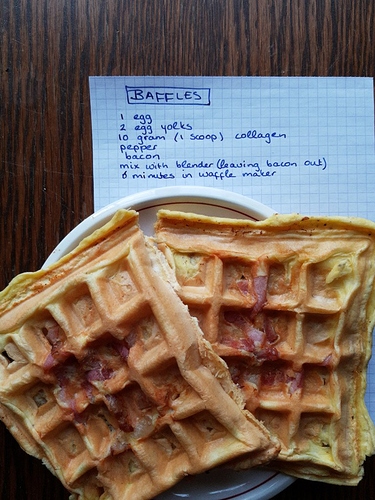 BAFFLES
1 egg
2 egg yolks
10 gram (1 scoop) collagen
pepper
bacon
mix with blender (leaving bacon out)
6 minutes in waffle maker